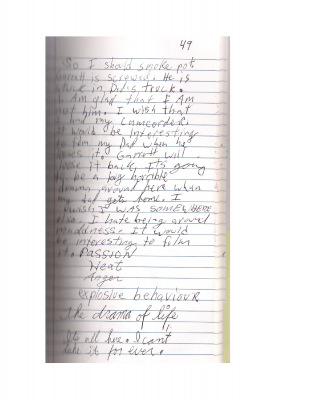 49
So I should smoke pot
Garrett is screwed. He is
stuck in Dad's truck.
I am glad that I AM
not him. I wish that
I had my camcorder.
It would be interesting
to film my Dad when he
sees it. Garrett will
it back. It's going
to be a big horrible
drama around here when
my dad gets home. I
wish I WAS SOMEWHERE
else. I hate being around
madness. It would
be interesting to film
it. PASSION
Heat
Anger
explosive behaviour
the drama of life
It's all here. I cant
take it for ever.